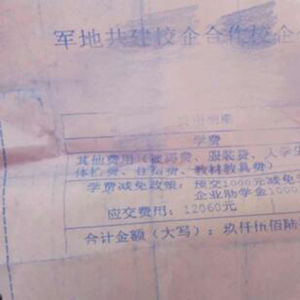 军地共建校企合作校企
费用明细
学费
其他费用（被褥费、服装费、入学
体检费、保险费、教材教具费）
学费减免政策：预交1000元减免
企业助学金1000
应交费用：12060元
合计金额（大写）：玖仟伍佰陆